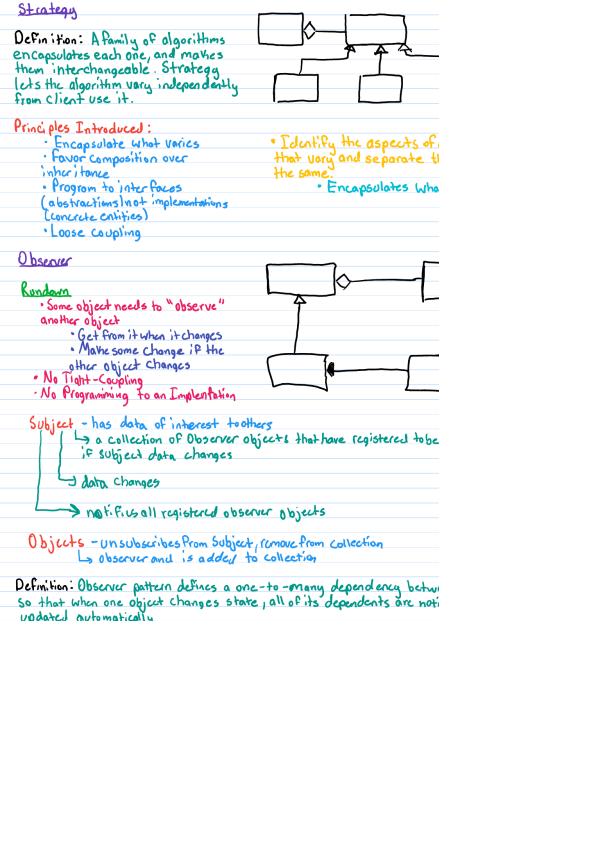 Strategy
Definition: A family of algorithms
encapsulates each one, and makes
them interchangeable. Strategy
lets the algorithm vary independently
from client use it.
Principles Introduced:
• Encapsulate what varies
• Favor Composition over
inheritance
• Program to interfaces
(abstractions) not implementations
(concrete entities)
• Loose Coupling
• Identify the aspects of
that vary and separate th
the same.
• Encapsulates wha
Observer
Rundown
• Some object needs to "observe"
another object
• Get from it when it changes
• Make some change if the
other object changes
• No Tight-Coupling
• No Programming to an Implentation
Subject - has data of interest to others
↳ a collection of Observer objects that have registered to be
if subject data changes
data changes
notifius all registered observer objects
Objects - unsubscribes from Subject, remove from collection
↳ observer and is added to collection
Definition: Observer pattern defines a one-to-many dependency betwe
so that when one object changes state, all of its dependents are noti
updated automatically